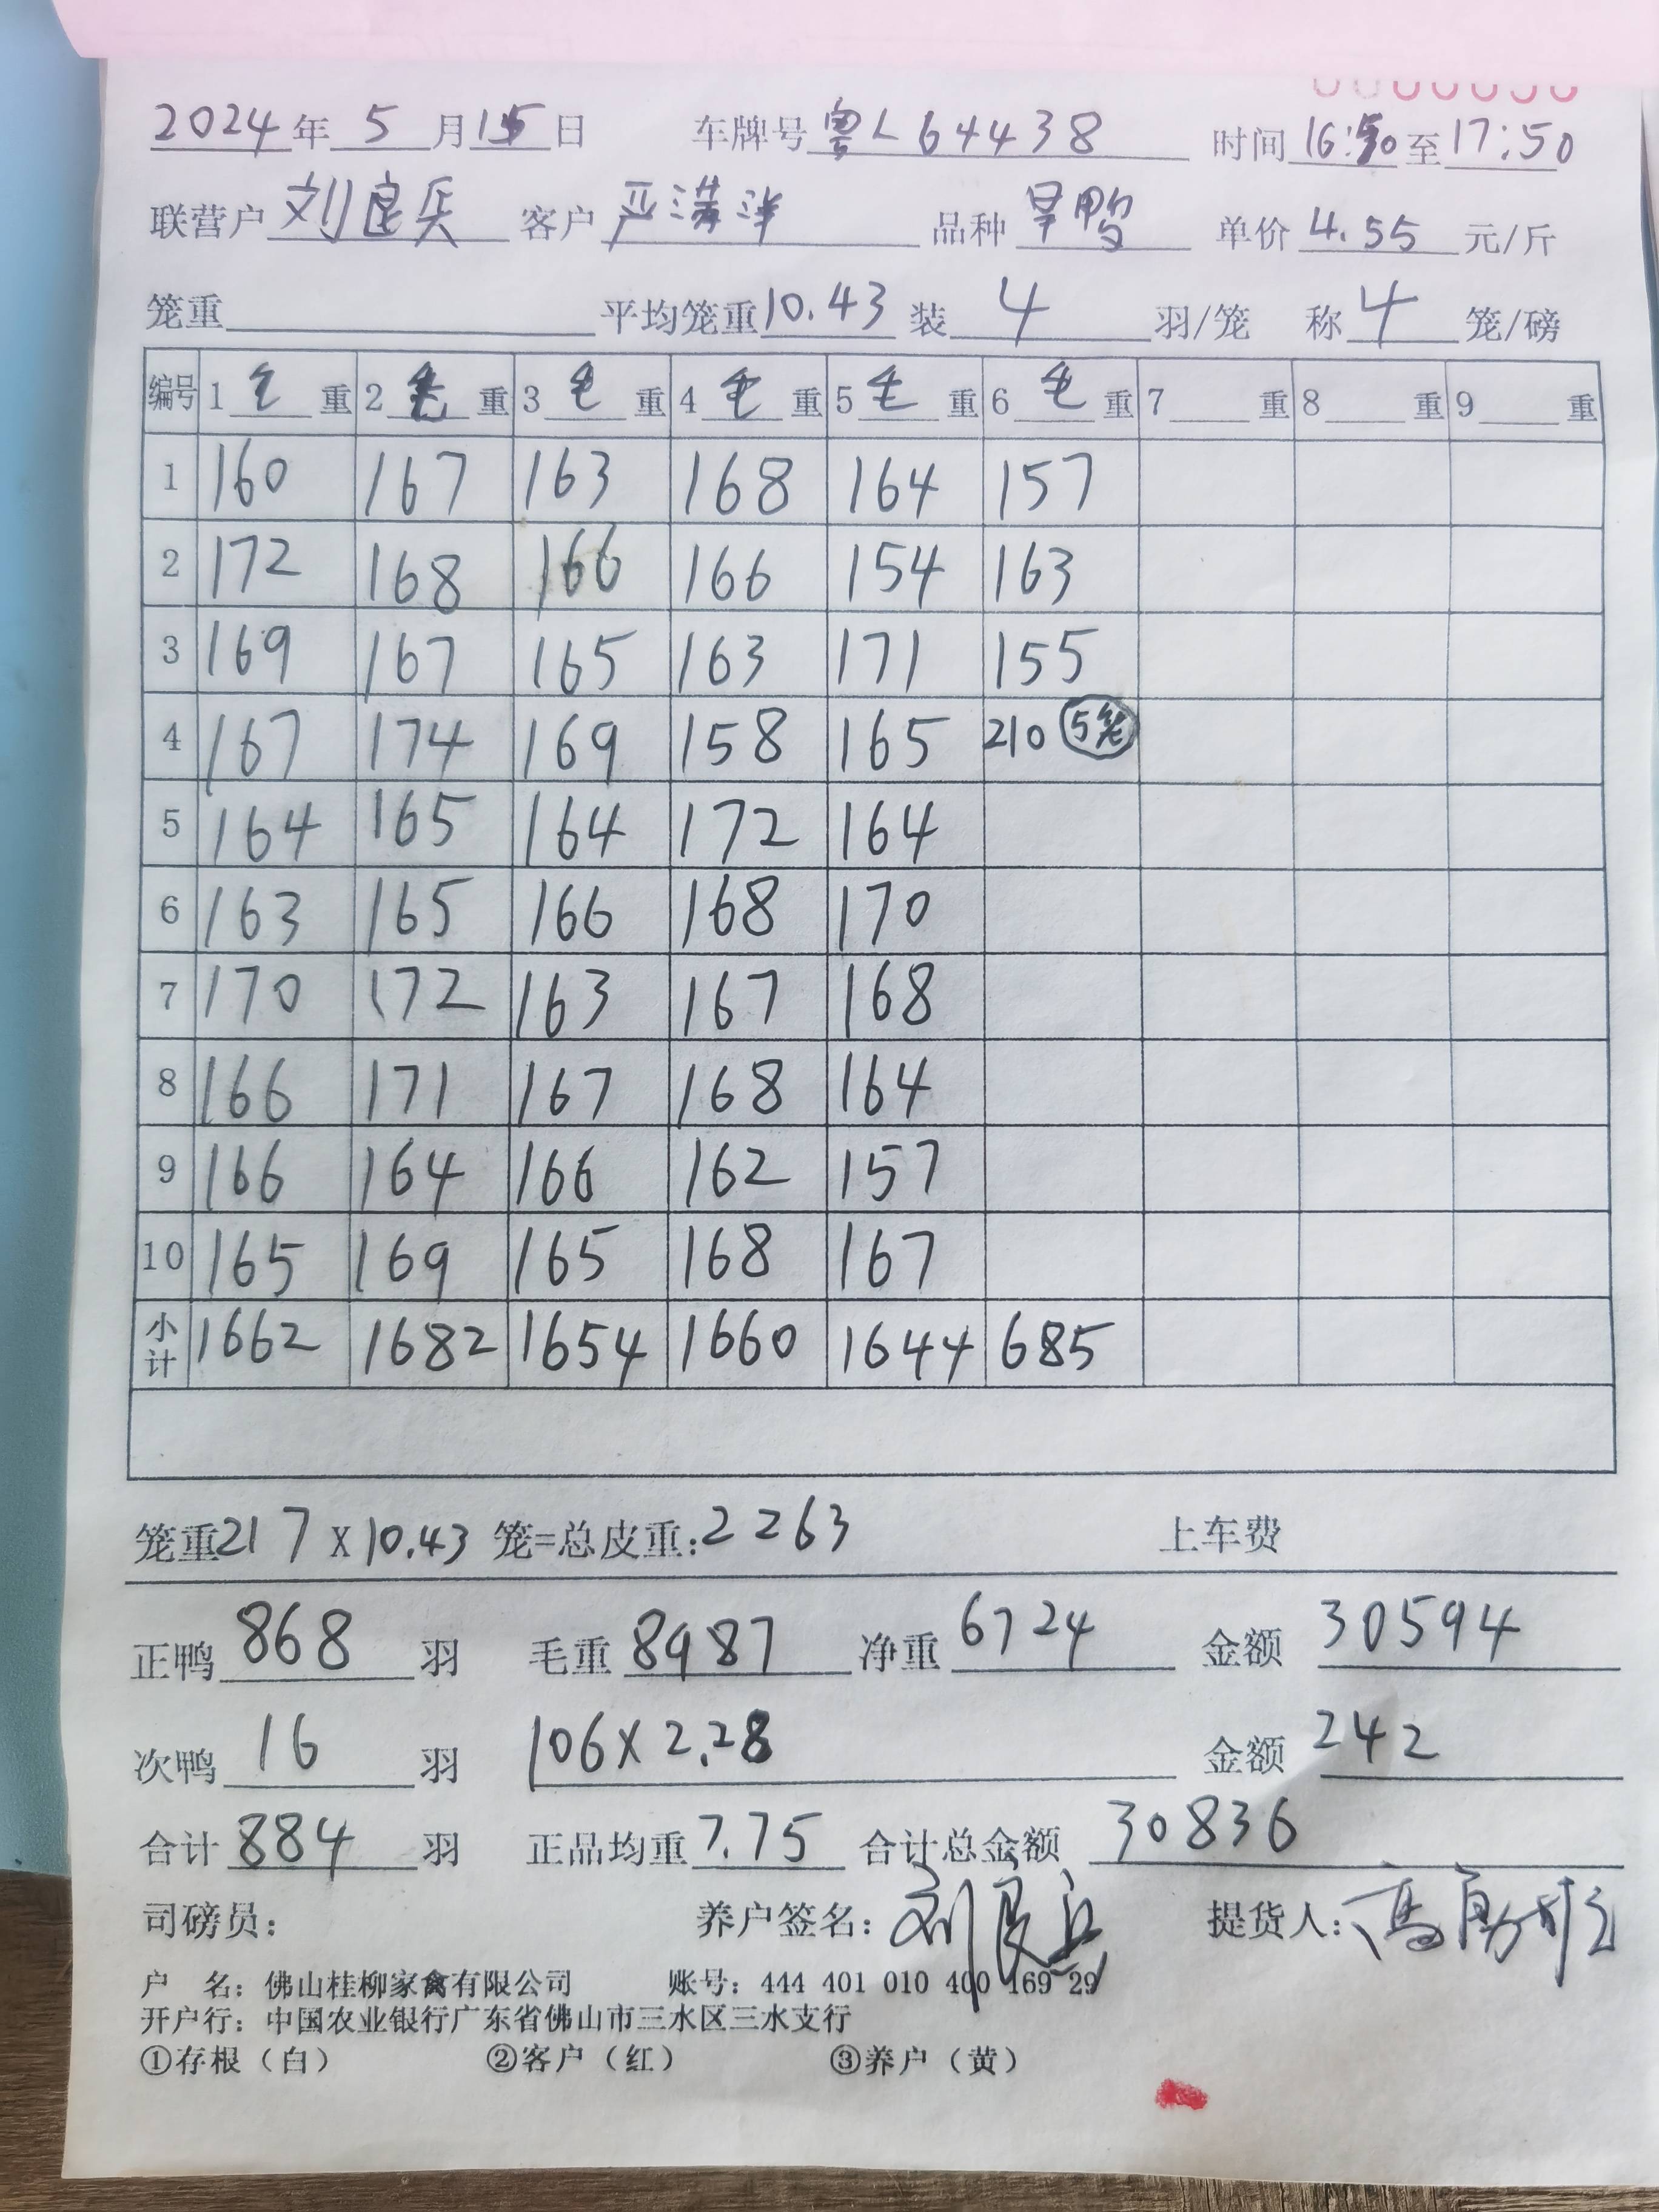 2024年 5 月 15 日 车牌号 粤L64438 时间 16:50 至 17:50
联营户 刘良兵 客户 严满洋 品种 旱鸭 单价 4.55 元/斤
笼重 平均笼重 10.43 装 4 羽/笼 称 4 笼/磅
编号 1 毛 重 2 毛 重 3 毛 重 4 毛 重 5 毛 重 6 毛 重 7 重 8 重 9 重
1 160 167 163 168 164 157
2 172 168 166 166 154 163
3 169 167 165 163 171 155
4 167 174 169 158 165 210 5笼
5 164 165 164 172 164
6 163 165 166 168 170
7 170 172 163 167 168
8 166 171 167 168 164
9 166 164 166 162 157
10 165 169 165 168 167
小计 1662 1682 1654 1660 1644 685
笼重 217 X 10.43 笼=总皮重: 2263 上车费
正鸭 868 羽 毛重 8987 净重 6724 金额 30594
次鸭 16 羽 106×2.28 金额 242
合计 884 羽 正品均重 7.75 合计总金额 30836
司磅员: 养户签名: 刘良兵 提货人:
户 名: 佛山桂柳家禽有限公司 账号: 444 401 010 400 169 29
开户行: 中国农业银行广东省佛山市三水区三水支行
①存根（白） ②客户（红） ③养户（黄）